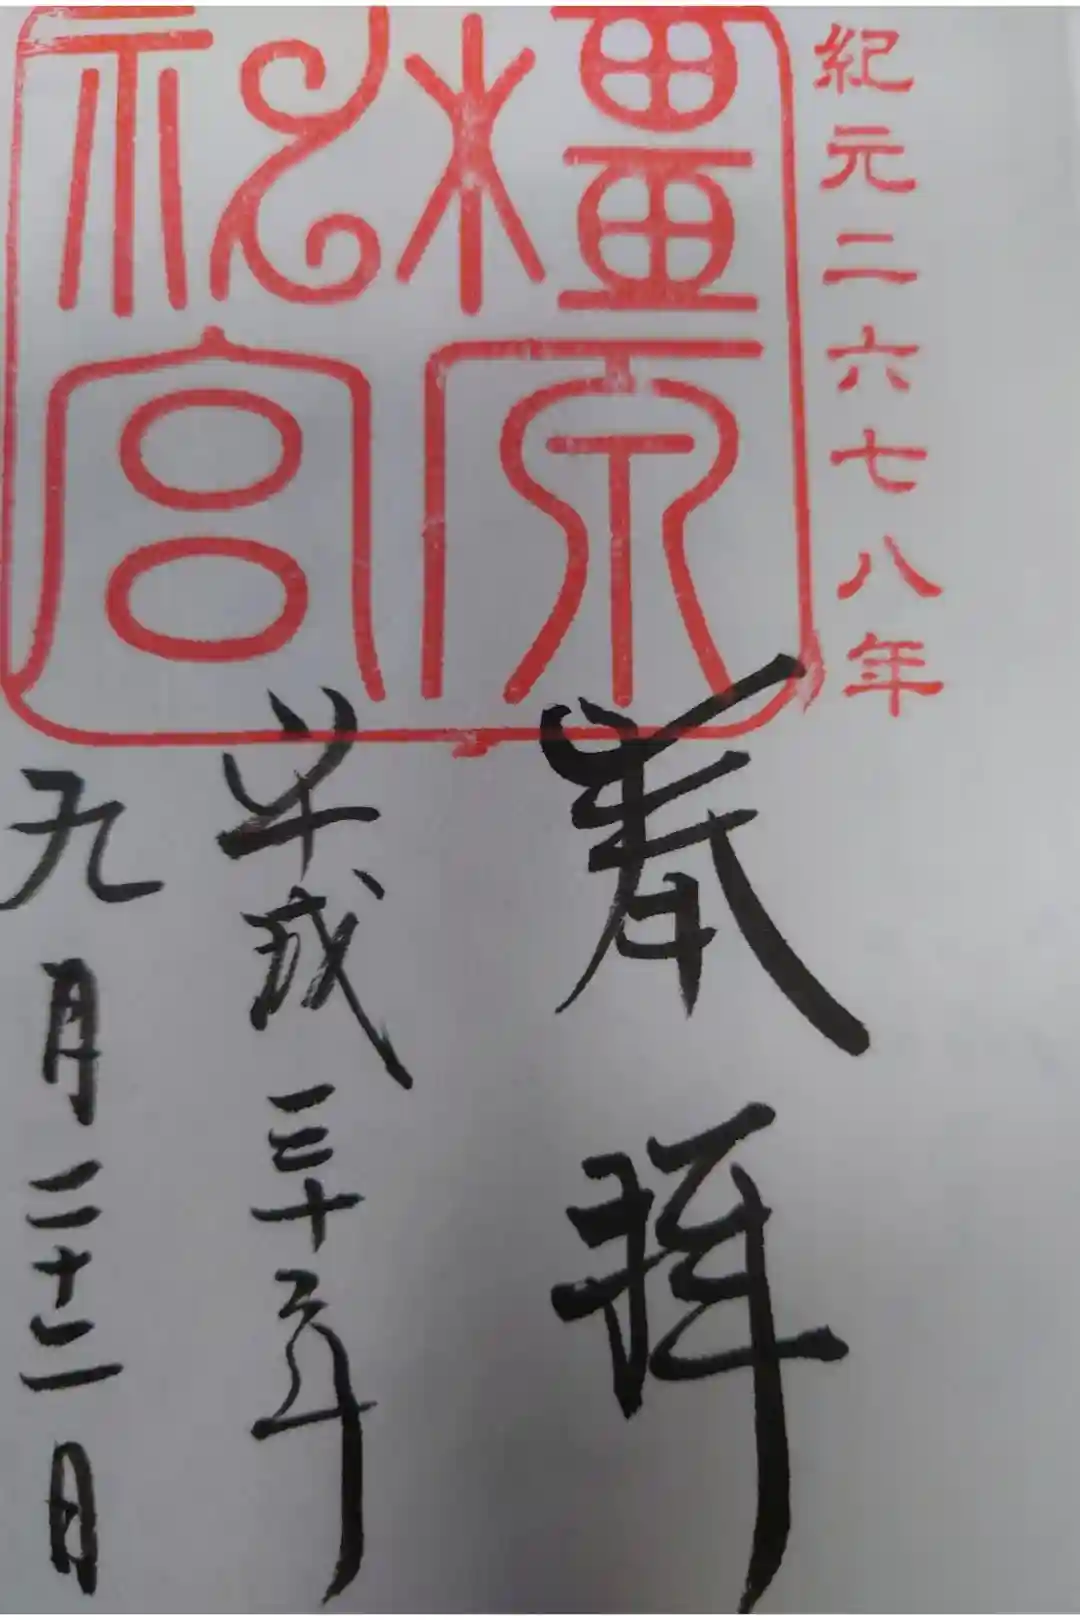 紀元二六七八年
橿原神宮
奉拝
平成三十年
九月二十二日